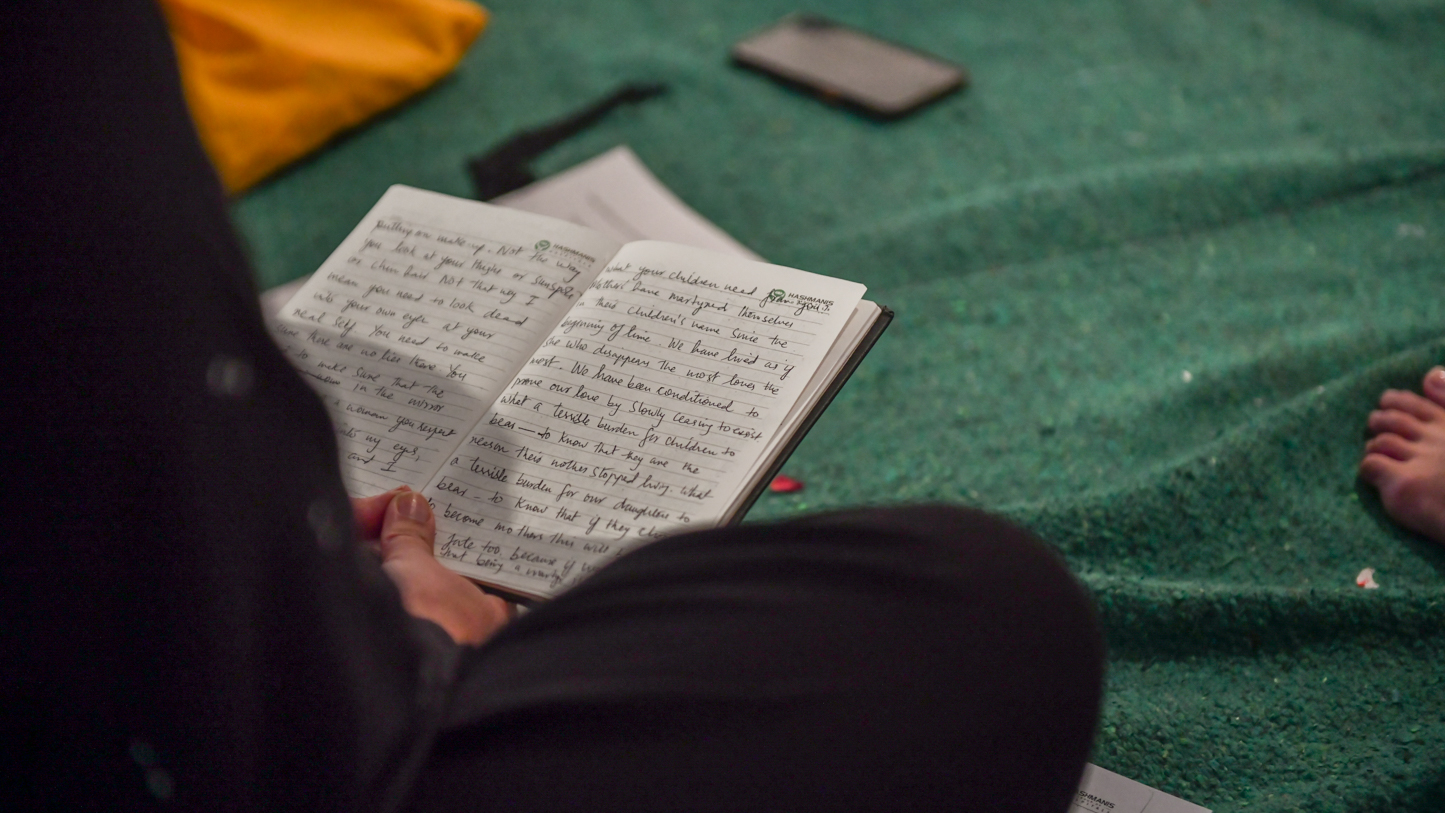 HASHMANIS
Putting on make-up. Not the way
you look at your thighs or sunspots
or chin hair Not that way I
mean you need to look dead
into your own eyes at your
real self You need to make
sure there are no lies there You
to make sure that the
in the mirror
a woman you respect
into my eyes,
and I
HASHMANIS
what your children need from you?
Mothers have martyred themselves
in their children's name since the
beginning of time. We have lived as if
she who disappears the most loves the
most. We have been conditioned to
prove our love by slowly ceasing to exist
what a terrible burden for children to
bear — to know that they are the
reason their mother stopped living. What
a terrible burden for our daughters to
bear - to know that if they
become mothers this will
fate too, because if
that being a
HASHMANIS